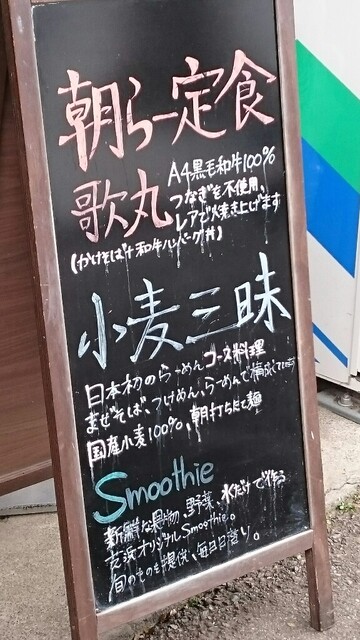 朝らー定食
歌丸
A4黒毛和牛100%
つなぎを不使用、
レアで焼き上げます
(かけそば+和牛ハンバーグ丼)
小麦三昧
日本初のらーめんコース料理
まぜそば、つけめん、らーめんで構成しています
国産小麦100%、朝打ち立て麺
Smoothie
新鮮な果物、野菜、氷だけで作る
支浜オリジナルSmoothie。
旬のものを提供、毎日日替り。